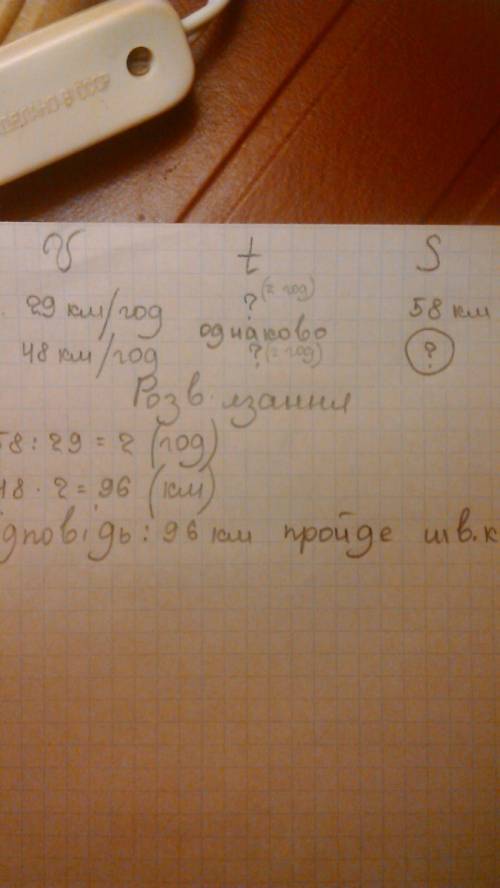 V t S
29 км/год ? (2 год) 58 км
однаково
48 км/год ? (2 год) ?
Розв. язання
58 : 29 = 2 (год)
48 · 2 = 96 (км)
ідповідь: 96 км пройде шв. к